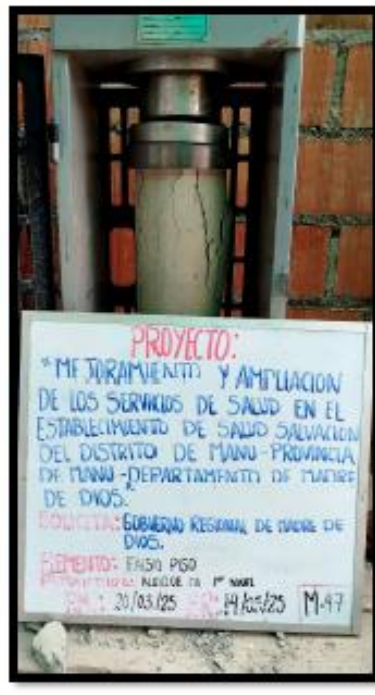 PROYECTO:
"MEJORAMIENTO Y AMPLIACION
DE LOS SERVICIOS DE SALUD EN EL
ESTABLECIMIENTO DE SALUD SALVACION
DEL DISTRITO DE MANU-PROVINCIA
DE MANU-DEPARTAMENTO DE MADRE
DE DIOS."
SOLICITA: GOBIERNO REGIONAL DE MADRE DE
DIOS.
ELEMENTO: FALSO PISO
1er NIVEL
20/03/25 M-47